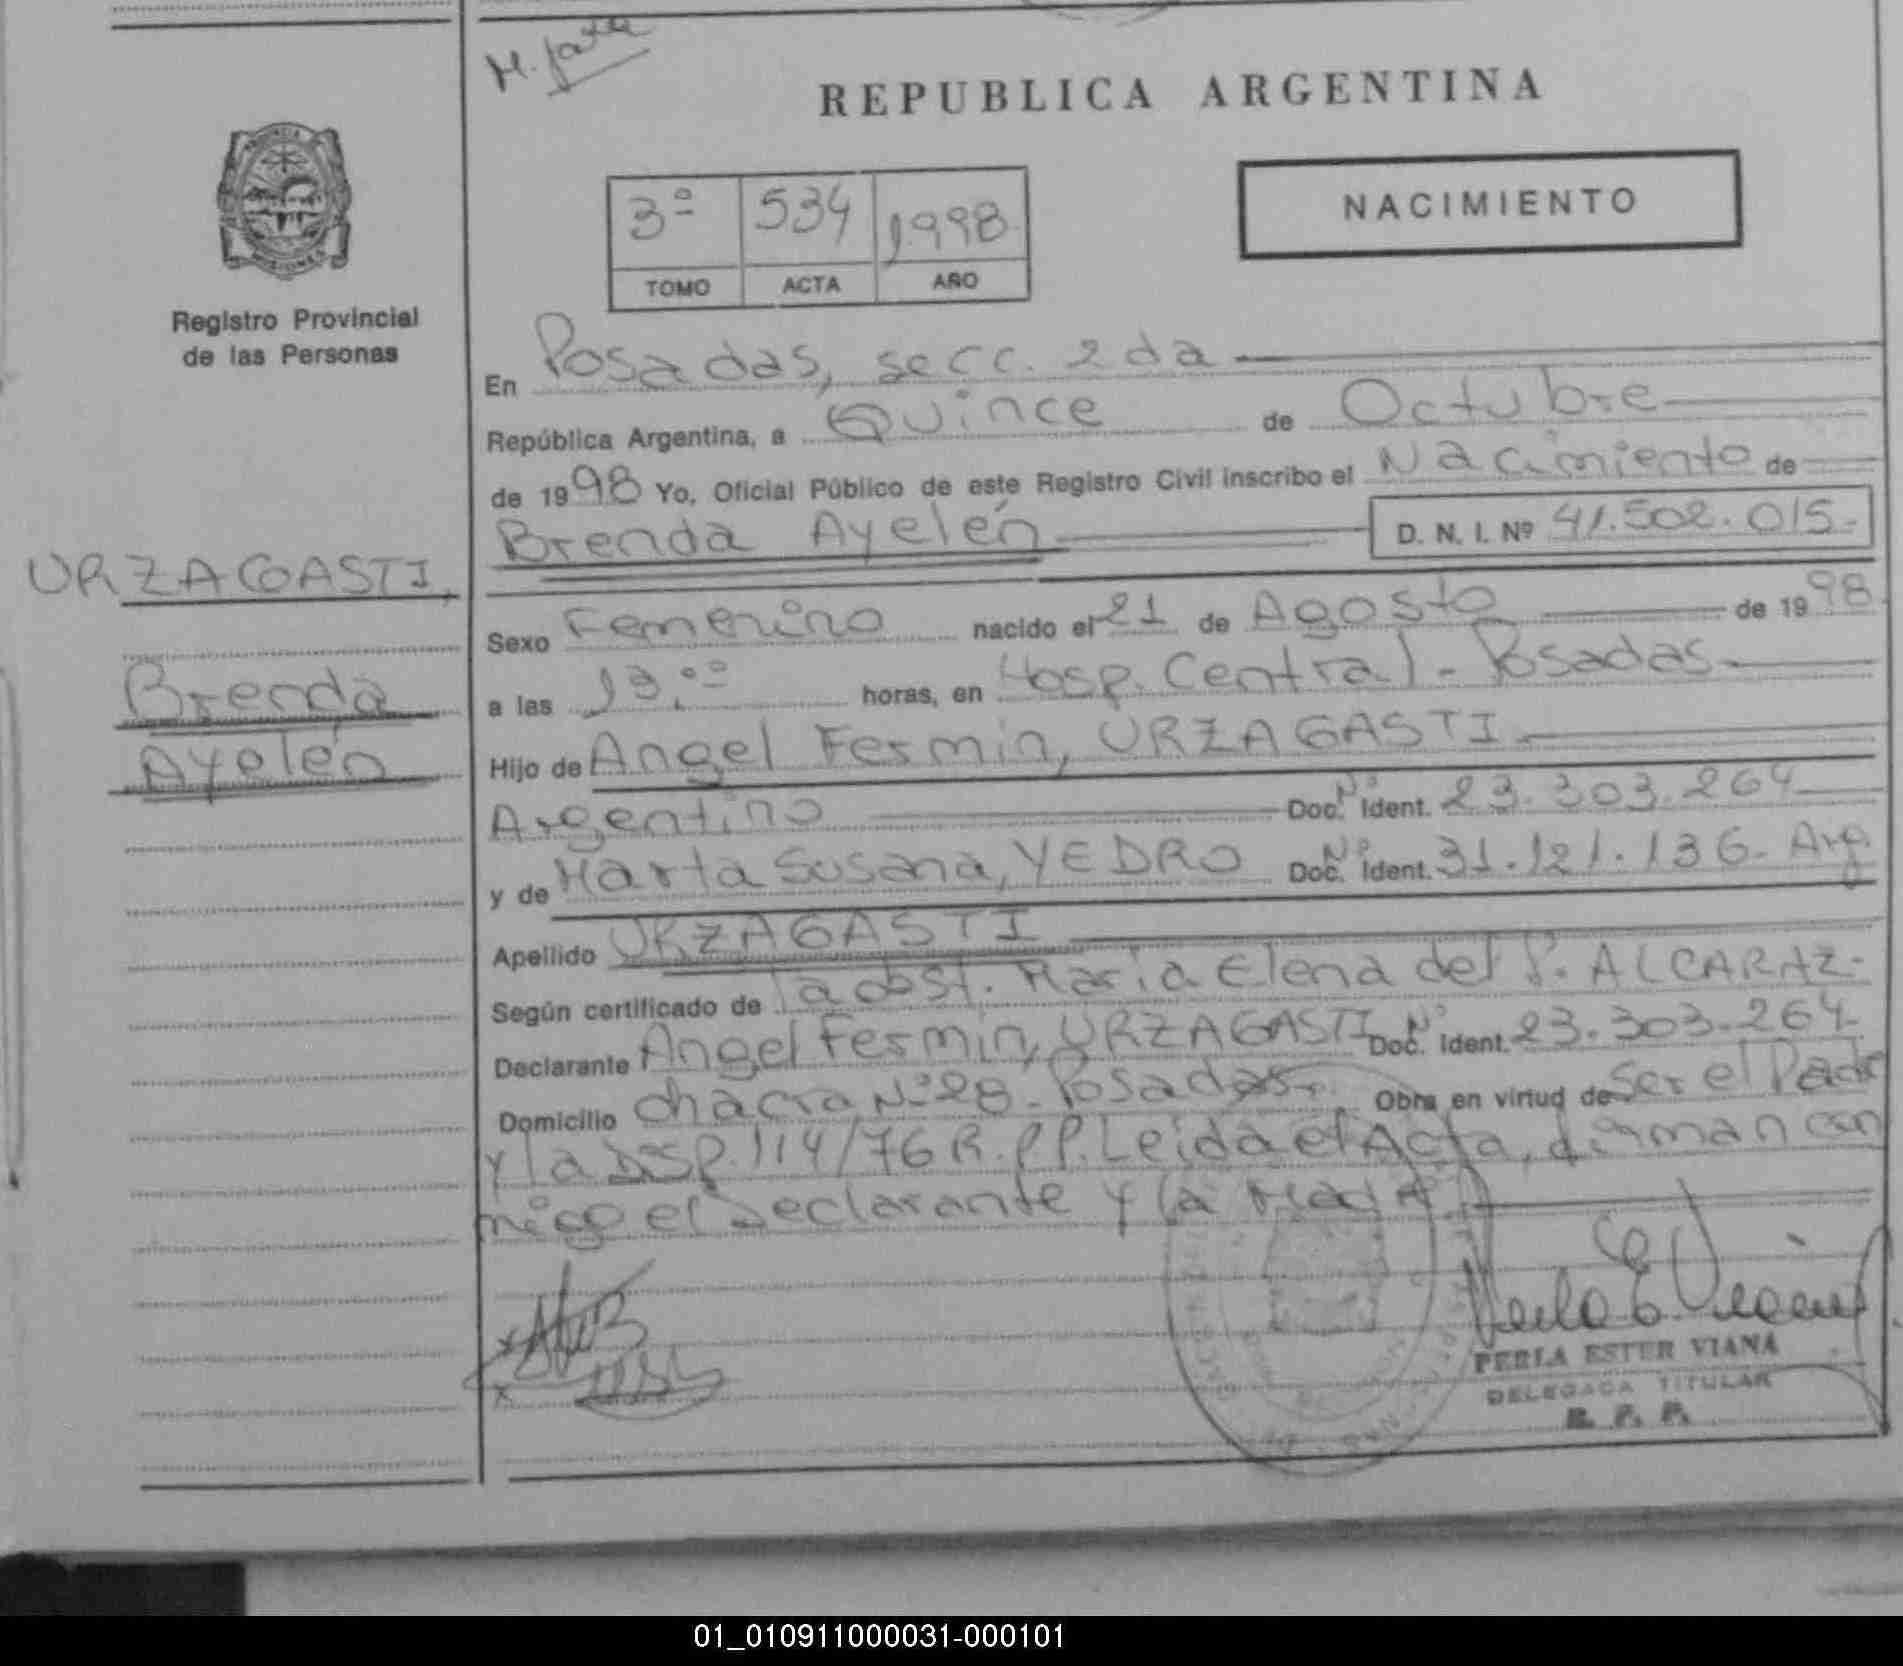 REPUBLICA ARGENTINA
NACIMIENTO
3º 534 1998
TOMO ACTA AÑO
Registro Provincial
de las Personas
En Posadas, secc. 2da
República Argentina, a Quince de Octubre
de 1998 Yo, Oficial Público de este Registro Civil inscribo el Nacimiento de
Brenda Ayelén D. N. I. Nº 41.502.015.-
URZAGASTI,
Brenda
Ayelén
Sexo Femenino nacido el 21 de Agosto de 1998
a las 13.ºº horas, en Hosp. Central - Posadas
Hijo de Angel Fermin, URZAGASTI
Argentino Doc. Nº Ident. 23.303.264
y de Marta Susana, YEDRO Doc. Nº Ident. 31.121.136. Arg.
Apellido URZAGASTI
Según certificado de la obst. Maria Elena del P. ALCARAZ-
Declarante Angel Fermin, URZAGASTI Doc. Nº Ident. 23.303.264
Domicilio chacra Nº 28 - Posadas. Obra en virtud de Ser el Padre
y la DISP. 114/76 R.P.P. Leida el Acta, firman con
migo el Declarante y la Madre
PERLA ESTER VIANA
DELEGADA TITULAR
R. P. P.
01_010911000031-000101